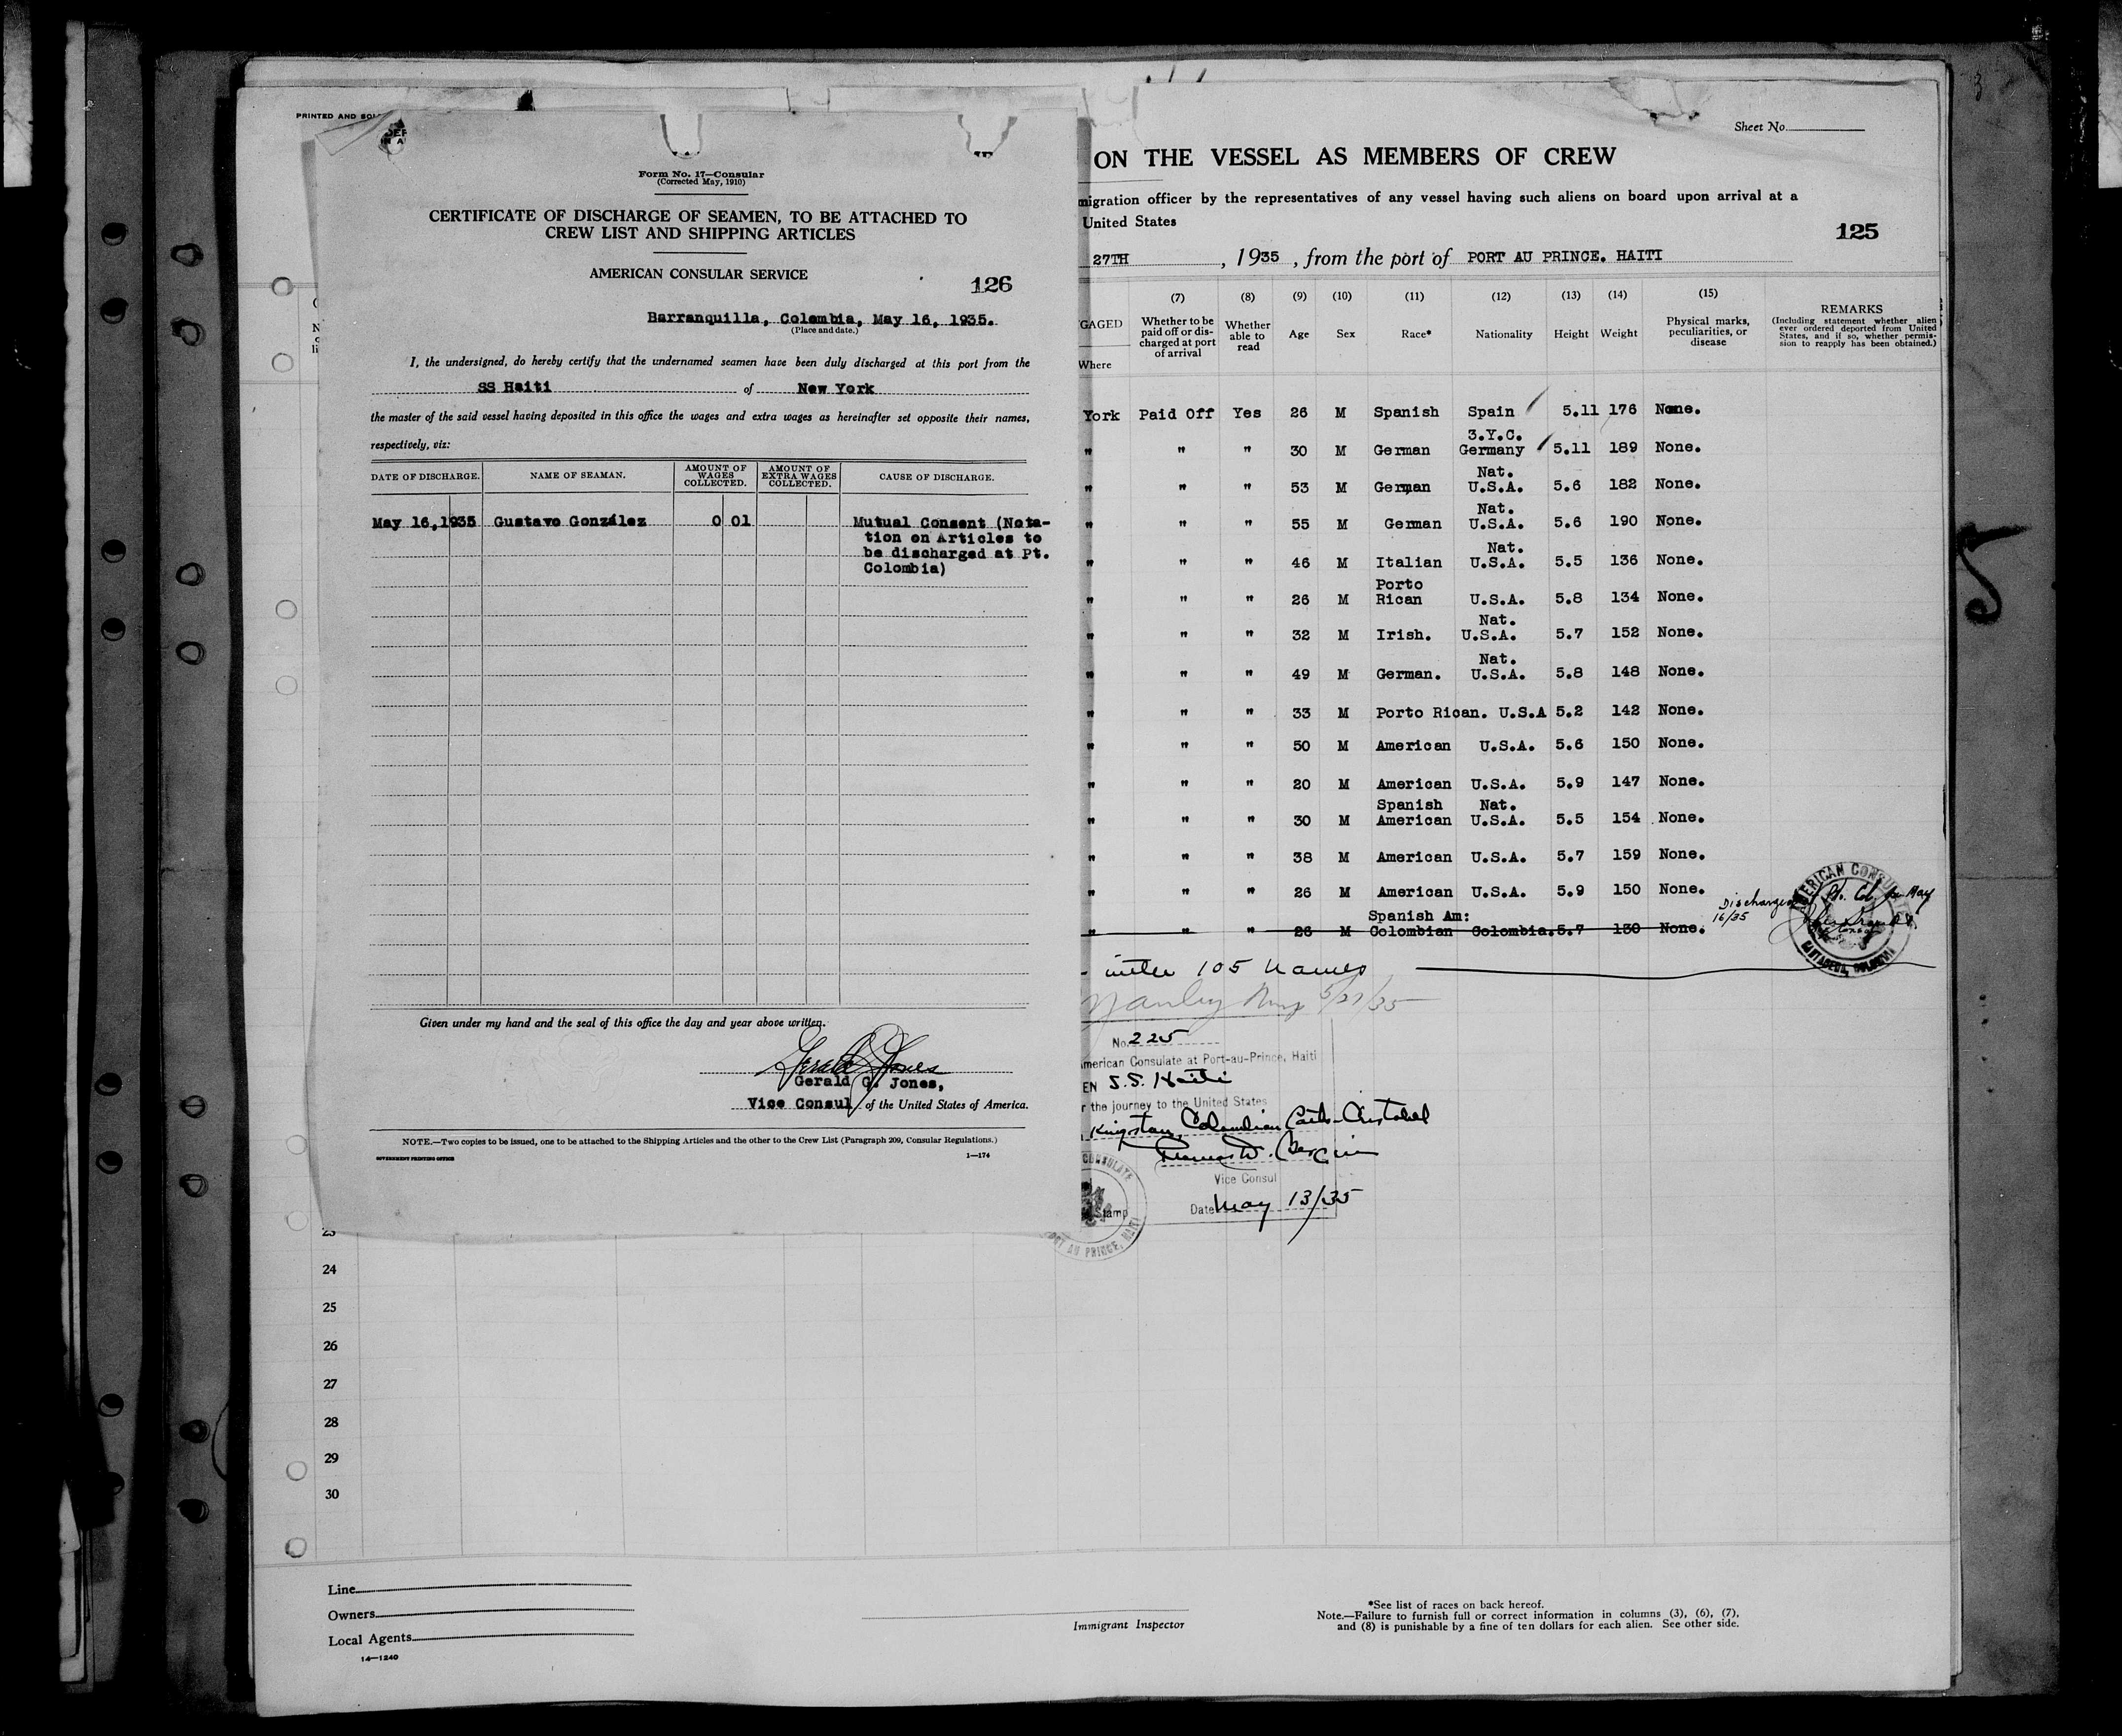 PRINTED AND SOL
Form No. 17—Consular
(Corrected May, 1910)
CERTIFICATE OF DISCHARGE OF SEAMEN, TO BE ATTACHED TO
CREW LIST AND SHIPPING ARTICLES
AMERICAN CONSULAR SERVICE
126
Barranquilla, Colombia, May 16, 1935.
(Place and date.)
I, the undersigned, do hereby certify that the undernamed seamen have been duly discharged at this port from the
SS Haiti of New York
the master of the said vessel having deposited in this office the wages and extra wages as hereinafter set opposite their names,
respectively, viz:
DATE OF DISCHARGE. NAME OF SEAMAN. AMOUNT OF WAGES COLLECTED. AMOUNT OF EXTRA WAGES COLLECTED. CAUSE OF DISCHARGE.
May 16, 1935 Gustavo González 0 01 Mutual Consent (Nota-
tion on Articles to
be discharged at Pt.
Colombia)
Given under my hand and the seal of this office the day and year above written.
Gerald G. Jones,
Vice Consul of the United States of America.
NOTE.—Two copies to be issued, one to be attached to the Shipping Articles and the other to the Crew List (Paragraph 209, Consular Regulations.)
GOVERNMENT PRINTING OFFICE 1—174
Sheet No.
ON THE VESSEL AS MEMBERS OF CREW
migration officer by the representatives of any vessel having such aliens on board upon arrival at a
United States
125
27TH, 1935, from the port of PORT AU PRINCE. HAITI
(7) (8) (9) (10) (11) (12) (13) (14) (15)
GAGED
Where
Whether to be paid off or discharged at port of arrival
Whether able to read
Age Sex Race* Nationality Height Weight
Physical marks, peculiarities, or disease
REMARKS
(Including statement whether alien
ever ordered deported from United
States, and if so, whether permis-
sion to reapply has been obtained.)
York Paid Off Yes 26 M Spanish Spain 5.11 176 None.
3.Y.C.
" " " 30 M German Germany 5.11 189 None.
Nat.
" " " 53 M German U.S.A. 5.6 182 None.
Nat.
" " " 55 M German U.S.A. 5.6 190 None.
Nat.
" " " 46 M Italian U.S.A. 5.5 136 None.
Porto
" " " 26 M Rican U.S.A. 5.8 134 None.
Nat.
" " " 32 M Irish. U.S.A. 5.7 152 None.
Nat.
" " " 49 M German. U.S.A. 5.8 148 None.
" " " 33 M Porto Rican. U.S.A 5.2 142 None.
" " " 50 M American U.S.A. 5.6 150 None.
" " " 20 M American U.S.A. 5.9 147 None.
Spanish Nat.
" " " 30 M American U.S.A. 5.5 154 None.
" " " 38 M American U.S.A. 5.7 159 None.
" " " 26 M American U.S.A. 5.9 150 None.
Spanish Am:
" " " 26 M Colombian Colombia. 5.7 130 None.
Discharged Pto. Col. May
16/35
AMERICAN CONSUL
105 names
5/27/35
No. 225
American Consulate at Port-au-Prince, Haiti
EN S.S. Haiti
r the journey to the United States
Kingston, Colombian Ports
Vice Consul
Date May 13/35
Stamp
CONSULATE
PORT AU PRINCE, HAITI
23
24
25
26
27
28
29
30
Line
Owners
Local Agents
14—1240
Immigrant Inspector
*See list of races on back hereof.
Note.—Failure to furnish full or correct information in columns (3), (6), (7),
and (8) is punishable by a fine of ten dollars for each alien. See other side.